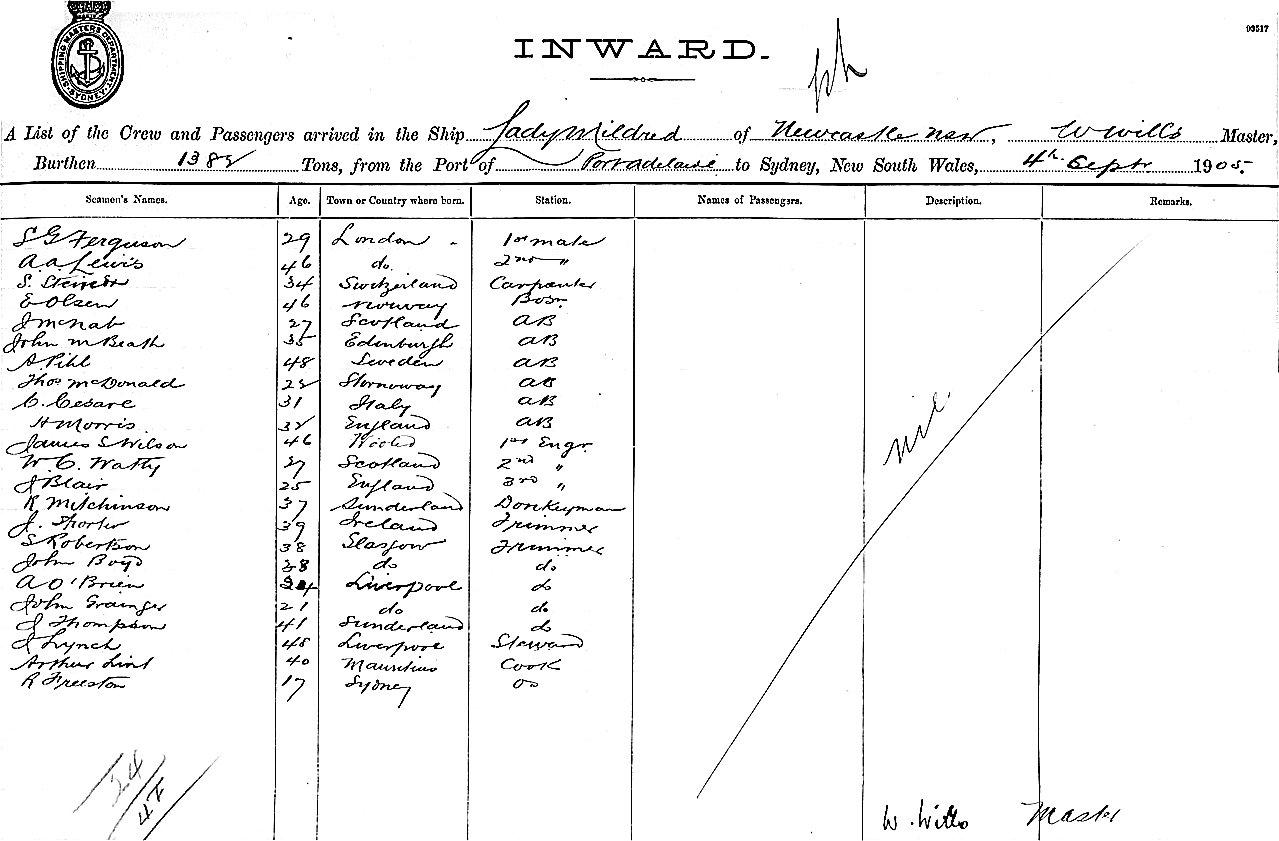 SHIPPING MASTERS DEPARTMENT. SYDNEY
93517
INWARD.
A List of the Crew and Passengers arrived in the Ship Lady Mildred of Newcastle NSW, W Wills Master,
Burthen 1382 Tons, from the Port of Port Adelaide to Sydney, New South Wales, 4th Septr 1905.
Seamen's Names. Age. Town or Country where born. Station. Names of Passengers. Description. Remarks.
S G Ferguson 29 London 1st mate
A. A. Lewis 46 do. 2nd "
S. Steiner 34 Switzerland Carpenter
E Olsen 46 Norway Bosn
J McNab 27 Scotland AB
John McBeath 35 Edinburgh AB
A Pihl 48 Sweden AB
Thos McDonald 28 Stornoway AB
C. Cesare 31 Italy AB
H Morris 32 England AB
James S Wilson 46 1st Engr.
W. C. Watty 27 Scotland 2nd "
J Blair 25 England 3rd "
R Mitchinson 37 Sunderland Donkeyman
J. Shorter 39 Ireland Trimmer
S Robertson 38 Glasgow Trimmer
John Boyd 28 do do
A O'Brien Liverpool do
John Grainger 21 do do
J Thompson 41 Sunderland do
J Lynch 48 Liverpool Steward
Arthur Lint 40 Mauritius Cook
R Freeston 17 Sydney OS
nil
24
47
W. Wills Master